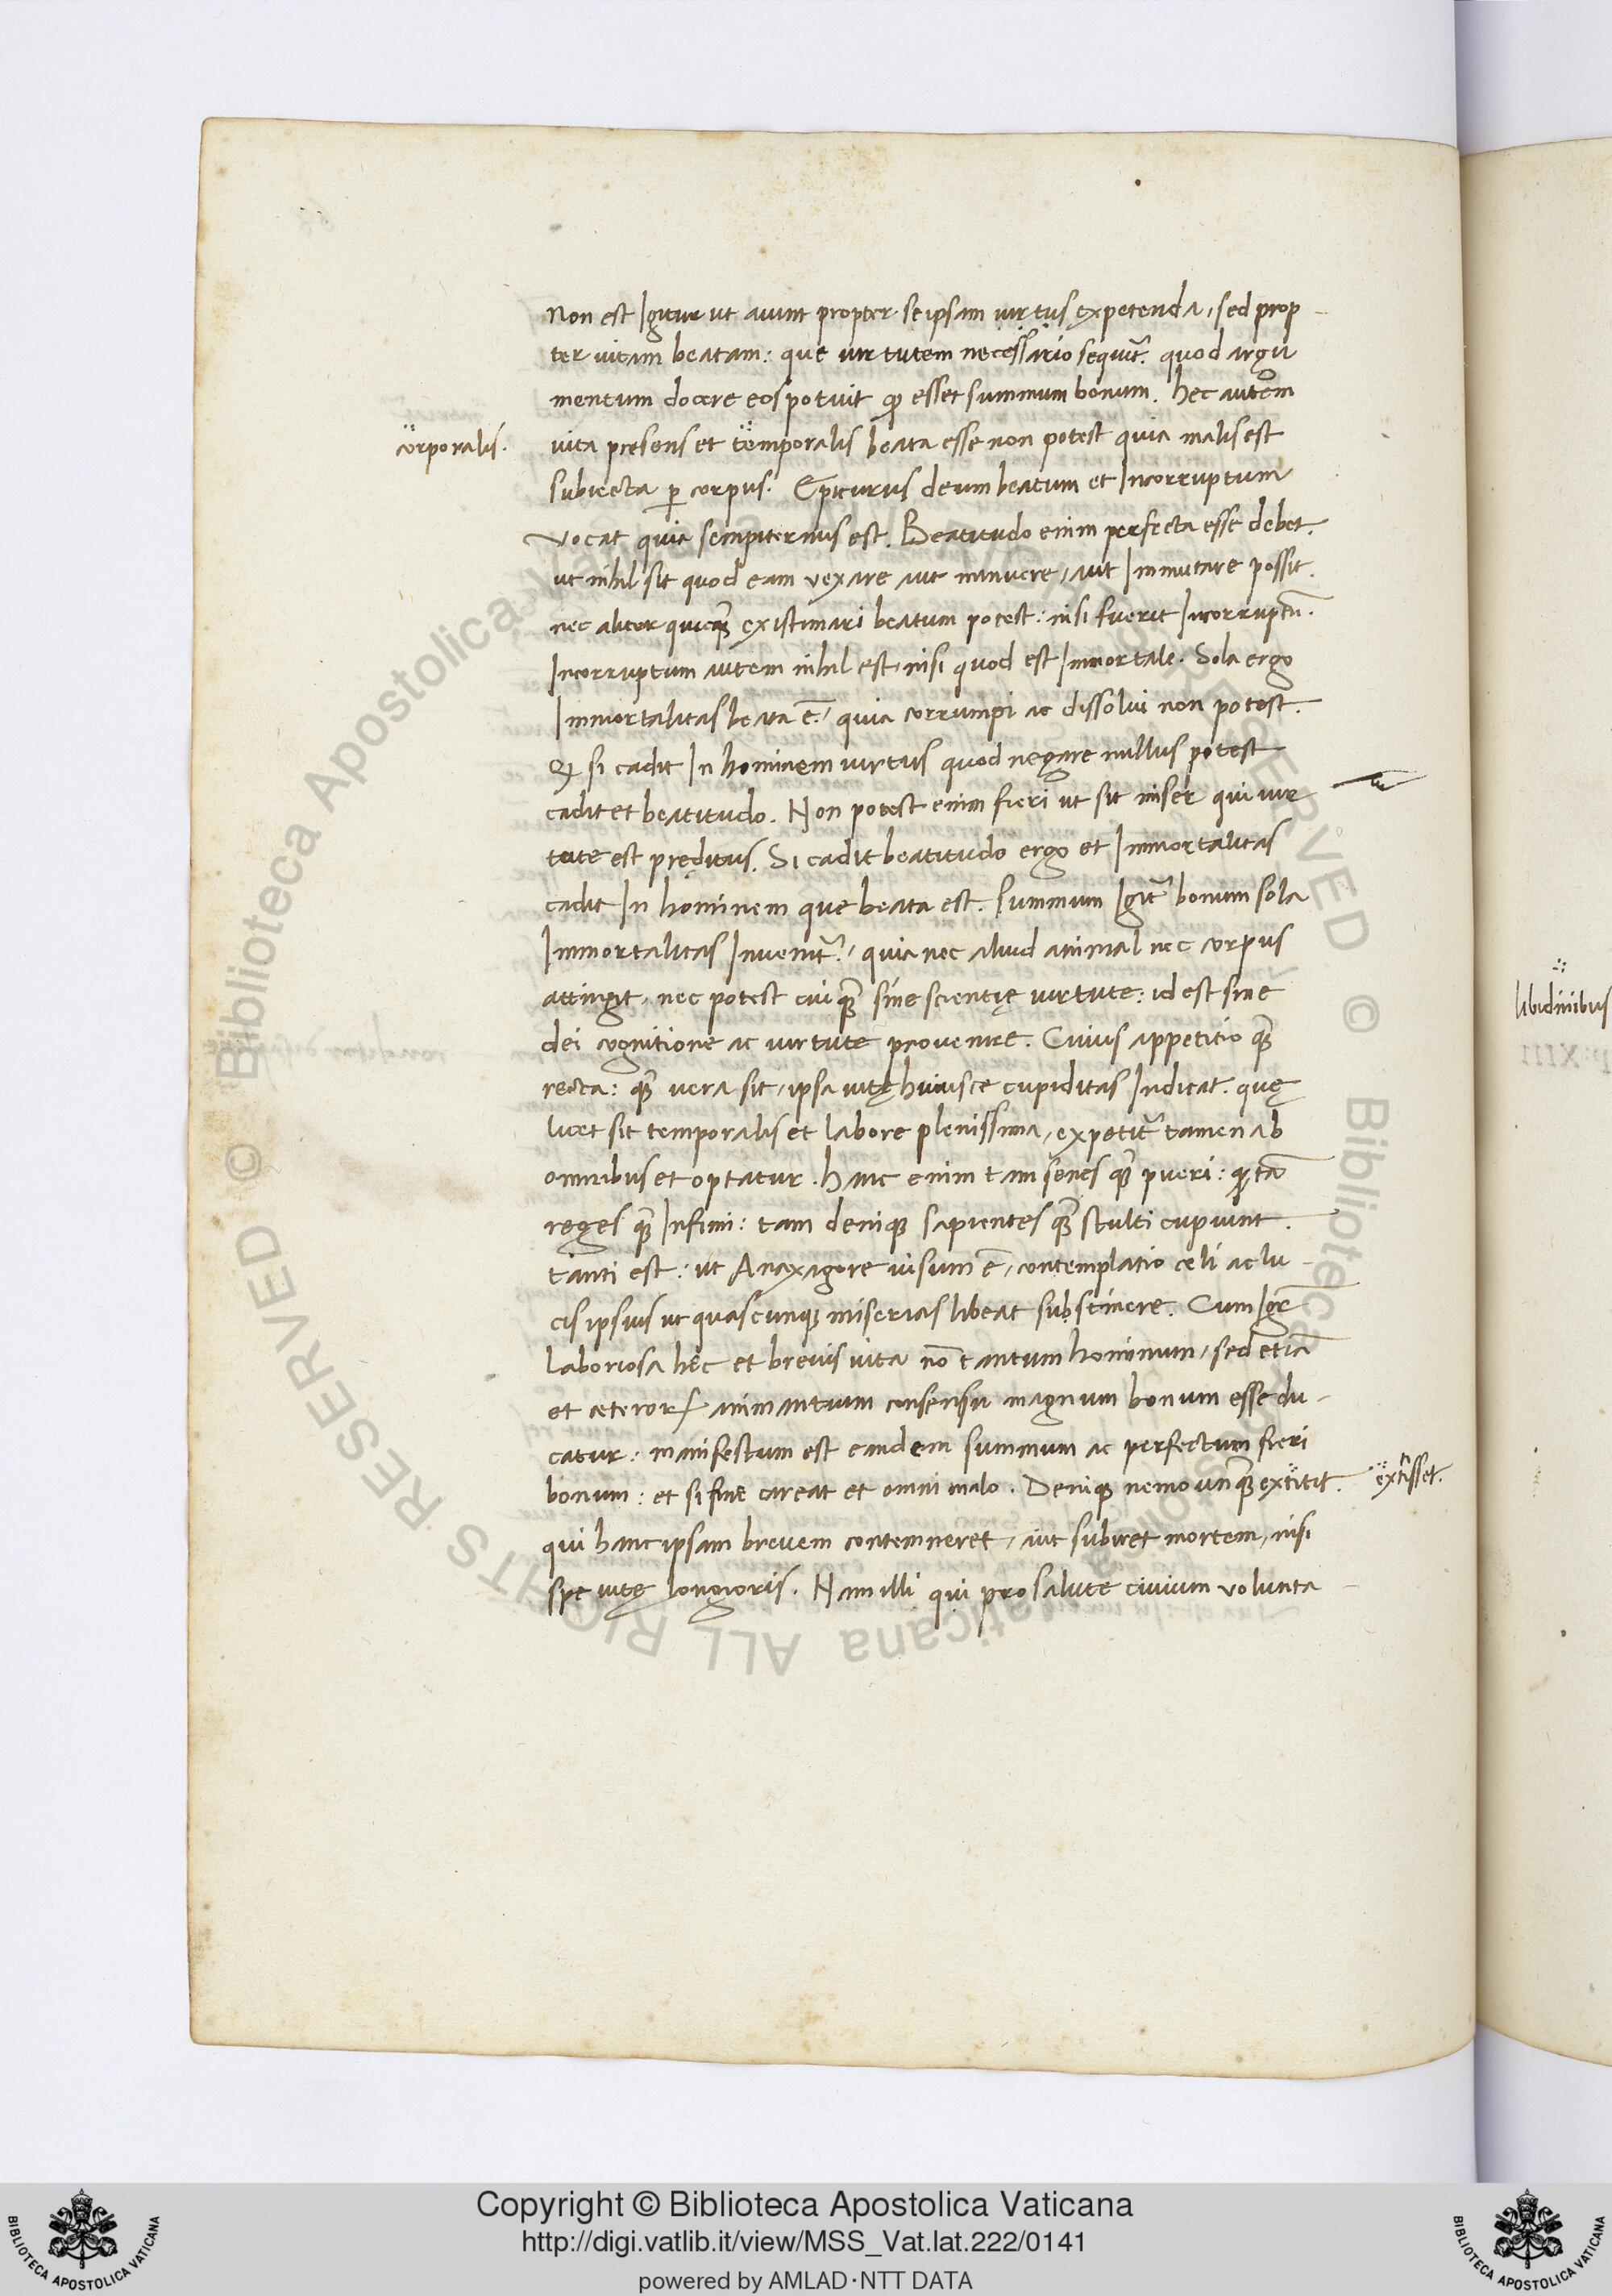 Non est Igitur ut aiunt propter seipsam virtus expetenda, sed prop-
ter vitam beatam: que virtutem necessario sequit᷑. quod argu
mentum docere eos potuit ꝙ esset summum bonum. hec autem
corporalis.
vita presens et temporalis beata esse non potest quia malis est
subiecta ꝑ corpus. Epicurus deum beatum et Incorruptum
vocat quia sempiternus est. Beatitudo enim perfecta esse debet.
ut nihil sit quod eam vexare aut minuere, aut Immutare possit.
nec aliter quicq̃ existimari beatum potest: nisi fuerit Incorruptũ.
Incorruptum autem nihil est, nisi quod est Immortale. Sola ergo
Immortalitas beata ẽ, quia corrumpi ac dissolvi non potest.
Ꝙ si cadit In hominem virtus quod negare nullus potest
cadit et beatitudo. Non potest enim fieri ut sit miser qui vir
tute est pręditus. Si cadit beatitudo ergo et Immortalitas
cadit In hominem que beata est. Summum Igit᷑ bonum sola
Immortalitas Invenit᷑, quia nec aliud animal nec corpus
attingit, nec potest cuiq̃ sine scientię virtute: id est sine
dei cognitione ac virtute provenire. Cuius appetitio q̃
recta: q̃ vera sit, ipsa vitę huiusce cupiditas Indicat. quę
licet sit temporalis et labore plenissima, expetit᷑ tamen ab
omnibus et optatur. hanc enim tam senes q̃ pueri: ꝙ tã
reges q̃ Infimi: tam deniqꝫ sapientes q̃ stulti cupiunt.
tanti est: ut Anaxagore visum ẽ, contemplatio celi ac lu-
cis ipsius ut quascunqꝫ miserias libeat substinere. Cum Igr̃
laboriosa hec et brevis vita nõ tantum hominum, sed etiã
et ceteroꝝ animantium consensu magnum bonum esse du-
catur: manifestum est eandem summum ac perfectum fieri
bonum: et si fine careat et omni malo. Deniqꝫ nemo unq̃ extitit.
extitisset.
qui hanc ipsam brevem contemneret, aut subiret mortem, nisi
spe vitę longioris. Nam illi qui pro salute civium volunta-
libidinibus
Copyright © Biblioteca Apostolica Vaticana
http://digi.vatlib.it/view/MSS_Vat.lat.222/0141
powered by AMLAD·NTT DATA
BIBLIOTECA APOSTOLICA VATICANA
BIBLIOTECA APOSTOLICA VATICANA